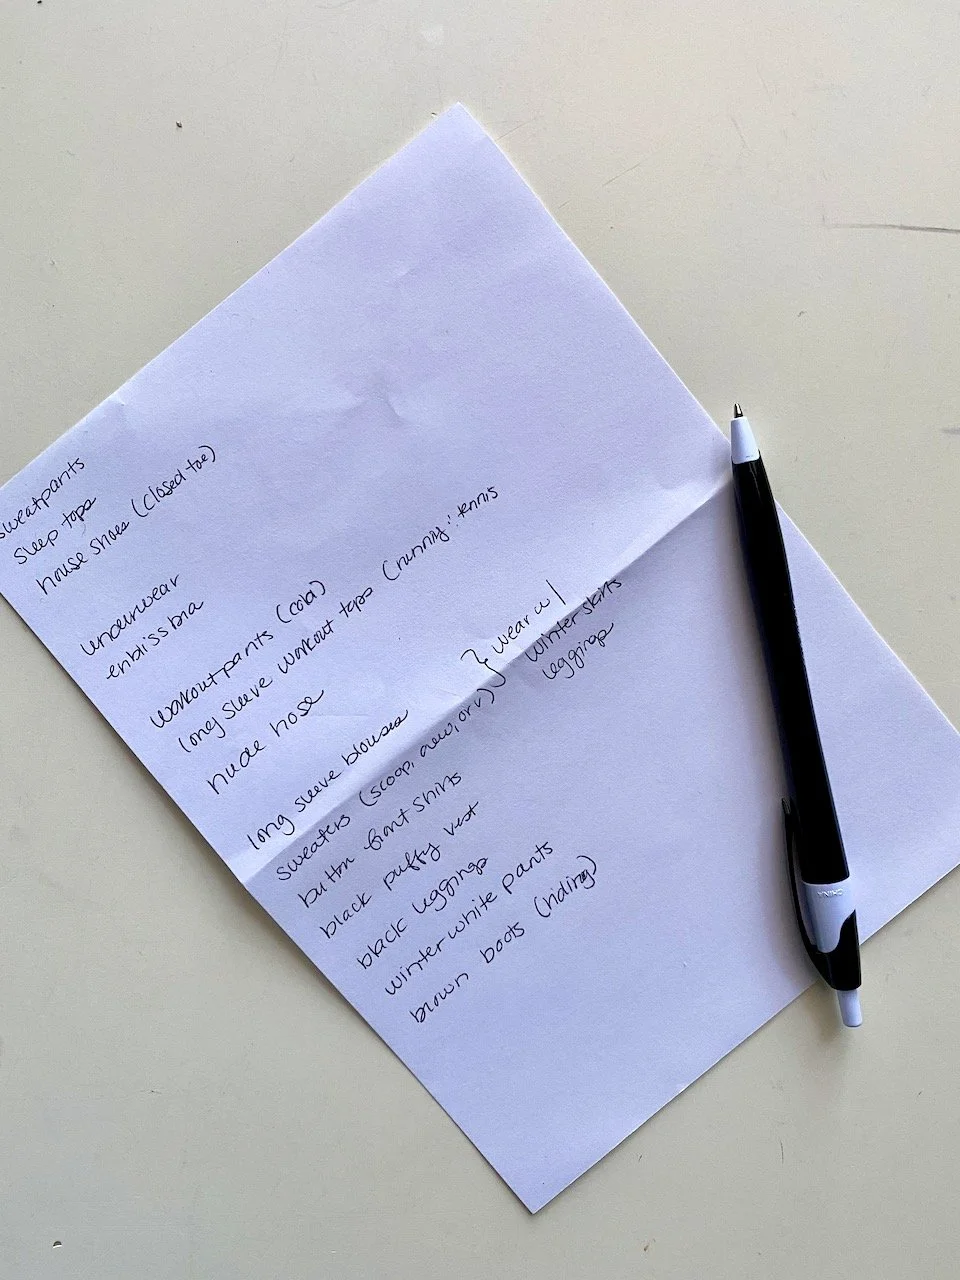 sweatpants
sleep tops
house shoes (closed toe)
underwear
enbliss bra
workout pants (cold)
long sleeve workout tops (running; tennis
nude hose
long sleeve blouses
sweaters (scoop, crew, or v) } wear w/
winter skirts
leggings
button front shirts
black puffy vest
black leggings
winter white pants
brown boots (riding)
CHINA